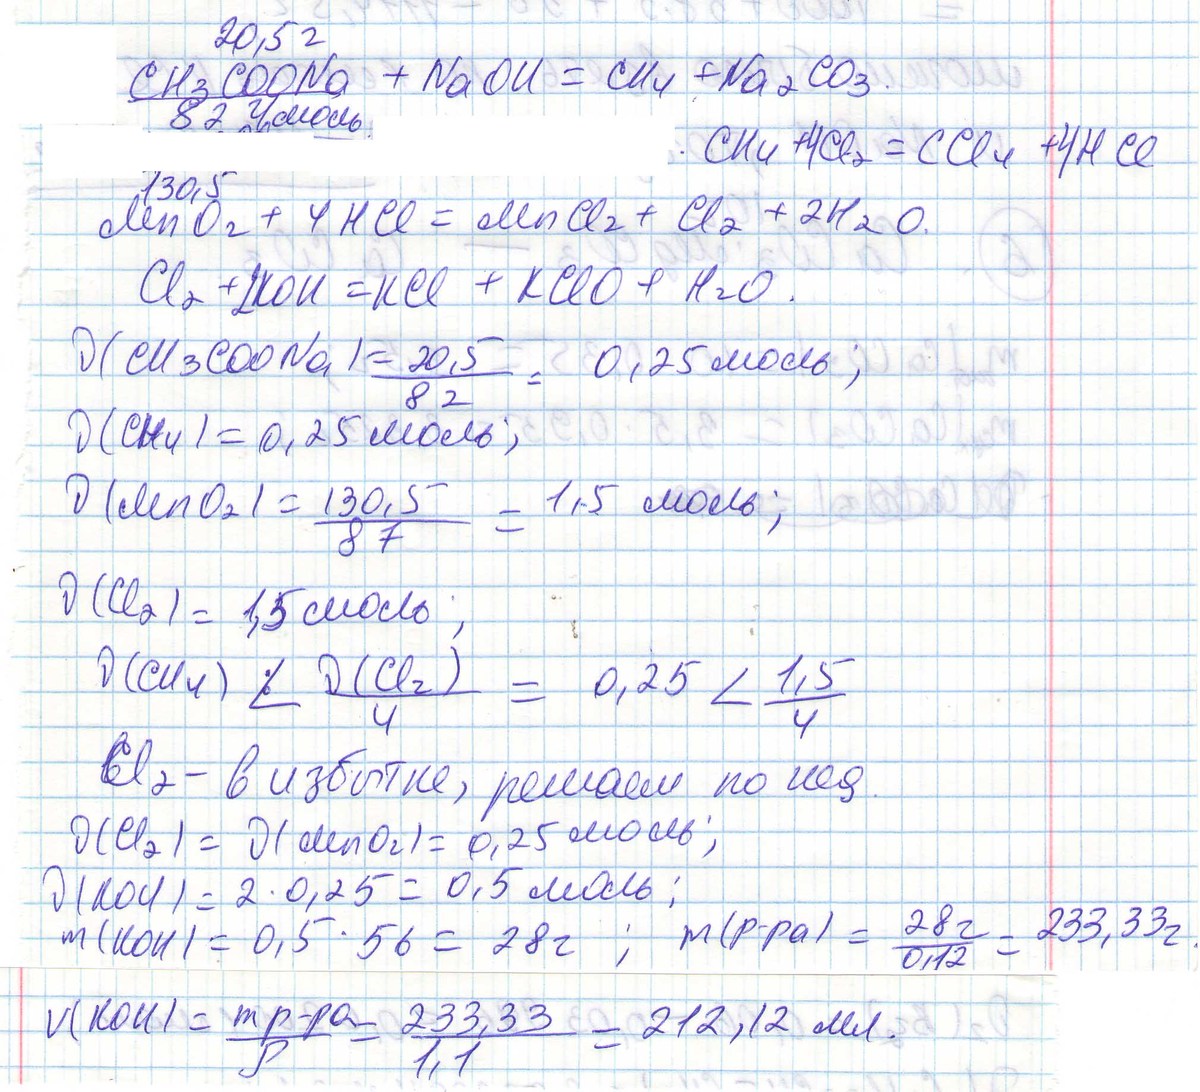 20,5 г
CH3COONa + NaOH = CH4 + Na2CO3.
82 г/моль
CH4 + 4Cl2 = CCl4 + 4HCl
130,5
MnO2 + 4HCl = MnCl2 + Cl2 + 2H2O.
Cl2 + 2KOH = KCl + KClO + H2O.
ν(CH3COONa) = 20,5/82 = 0,25 моль;
ν(CH4) = 0,25 моль;
ν(MnO2) = 130,5/87 = 1.5 моль;
ν(Cl2) = 1,5 моль;
ν(CH4) < ν(Cl2)/4 = 0,25 < 1,5/4
Cl2 – в избытке, решаем по нед.
ν(Cl2) = ν(MnO2) = 0,25 моль;
ν(KOH) = 2·0,25 = 0,5 моль;
m(KOH) = 0,5 · 56 = 28г ; m(р-ра) = 28г/0,12 = 233,33г.
V(KOH) = mр-ра/ρ = 233,33/1,1 = 212,12 мл.